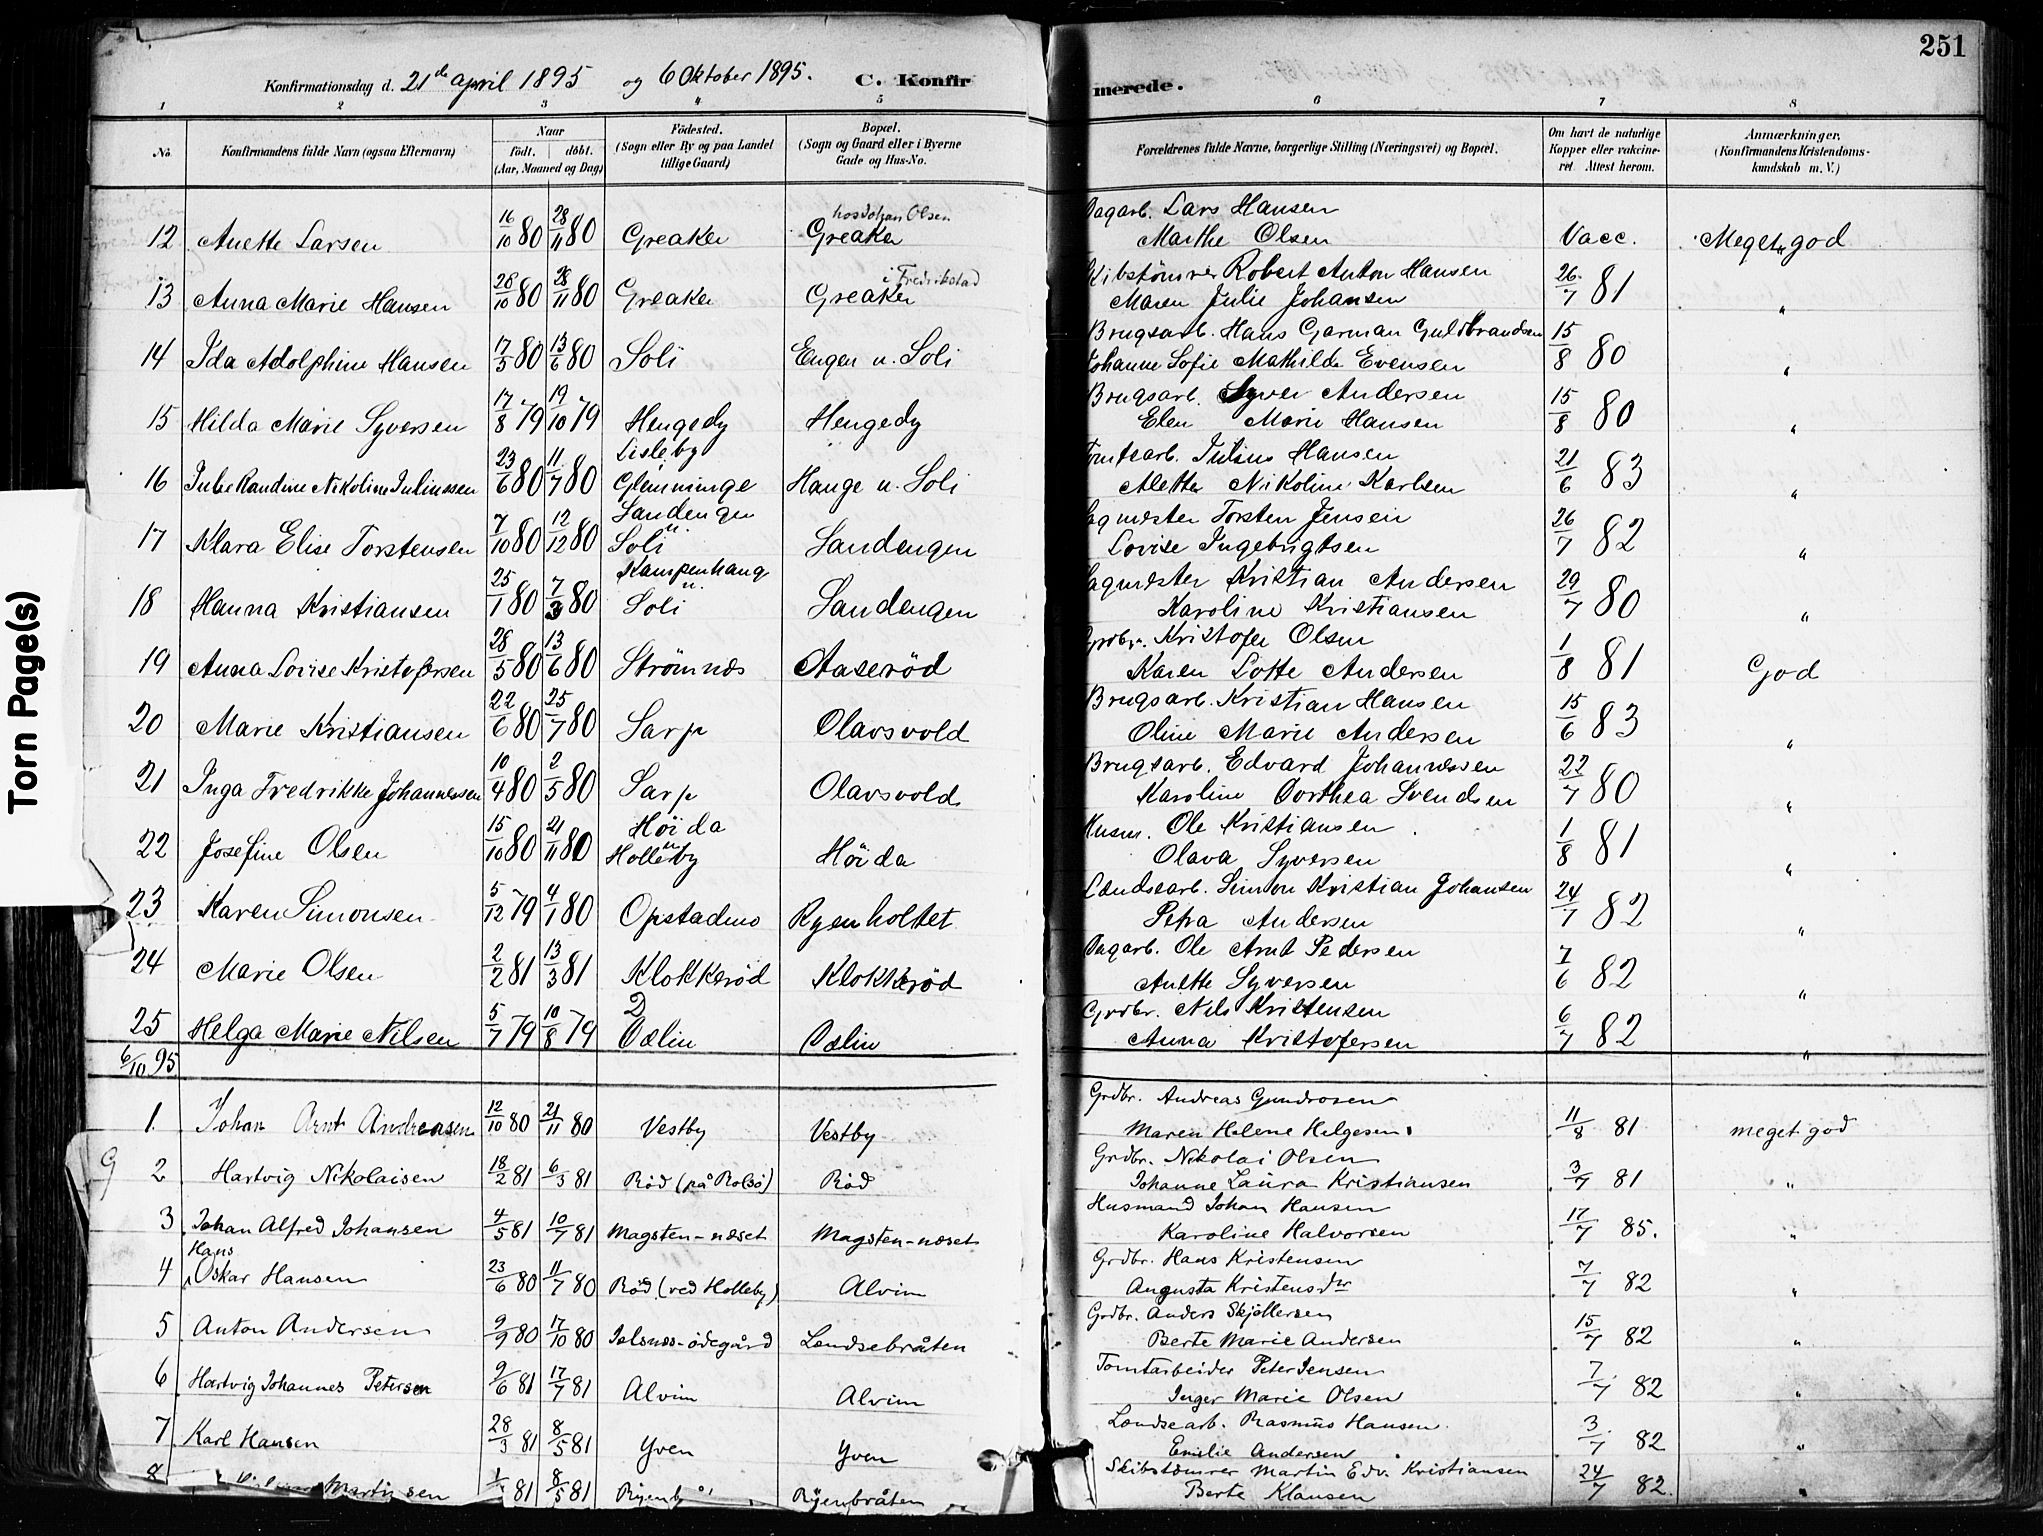 251
Konfirmationsdag d. 21de april 1895 og 6 Oktober 1895. C. Konfirmerede.
1 2 3 4 5 6 7 8
No. Konfirmandens fulde Navn (ogsaa Efternavn) Naar født. døbt. (Aar, Maaned og Dag) Fødested. (Sogn eller By og paa Landet tillige Gaard) Bopæl. (Sogn og Gaard eller i Byerne Gade og Hus-No. Forældrenes fulde Navne, borgerlige Stilling (Næringsvei) og Bopæl. Om havt de naturlige Kopper eller vaccineret Attest herom. Anmærkninger. (Konfirmandens Kristendomskundskab m. V.)
hos Johan Olsen
Dagarb. Lars Hansen
12 Anette Larsen 16/10 80 28/11 80 Greaker Greaker Marthe Olsen Vacc. Meget god
i Fredrikstad
Skibstömrer Robert Anton Hansen
13 Anna Marie Hansen 28/10 80 28/11 80 Greaker Greaker Maren Julie Johansen 26/7 81 "
Brugsarb. Hans Garman Guldbrandsen
14 Ida Adolphine Hansen 17/5 80 13/6 80 Soli Engen u. Soli Johanne Sofie Mathilde Evensen 15/8 80 "
Brugsarb. Syver Andersen
15 Hilda Marie Syversen 17/8 79 19/10 79 Hengedy Hengedy Elen Marie Hansen 15/8 80 "
Lisleby
Tomtearb. Julius Hansen
16 Julie Randine Nikoline Juliussen 23/6 80 11/7 80 Glemminge Hauge u. Soli Alette Nikoline Karlsen 21/6 83 "
Sandengen u.
Sagmester Torsten Jensen
17 Klara Elise Torstensen 7/10 80 12/12 80 Soli Sandengen Lovise Ingebrigtsen 26/7 82 "
Kampenhaug u.
Sagmester Kristian Andersen
18 Hanna Kristiansen 25/1 80 7/3 80 Soli Sandengen Karoline Kristiansen 29/7 80 "
Grdbr. Kristofer Olsen
19 Anna Lovise Kristofersen 28/5 80 13/6 80 Strömnes Aaseröd Karen Lotte Andersen 1/8 81 God
Brugsarb. Kristian Hansen
20 Marie Kristiansen 22/6 80 25/7 80 Sarp Olavsvold Oline Marie Andersen 15/6 83 "
Brugsarb. Edvard Johannessen
21 Inga Fredrikke Johannessen 10/4 80 2/5 80 Sarp Olavsvold Karoline Dorthea Svendsen 22/7 80 "
Höida u.
Husm. Ole Kristiansen
22 Josefine Olsen 15/10 80 21/11 80 Holleby Höida Olava Syversen 1/8 81 "
Lændsearb. Simon Kristian Johansen
23 Karen Simonsen 5/12 79 4/1 80 Opstadmo Ryenholtet Petra Andersen 24/7 82 "
Dagarb. Ole Arnt Pedersen
24 Marie Olsen 2/2 81 13/3 81 Klokkeröd Klokkeröd Anette Syversen 7/6 82 "
Grdbr. Nils Kristensen
25 Helga Marie Nilsen 5/7 79 10/8 79 Ødlin Ødlin Anna Kristofersen 6/7 82 "
6/10 95
Grdbr. Andreas Gundrosen
1. Johan Arnt Andreasen 12/10 80 21/11 80 Vestby Vestby Maren Helene Helgesen 11/8 81 meget god
Grdbr. Nikolai Olsen
G 2 Hartvig Nikolaisen 18/2 81 6/3 81 Röd (på Rolsö) Röd Johanne Laura Kristiansen 3/7 81 "
Husmand Johan Hansen
3 Johan Alfred Johansen 4/5 81 10/7 81 Magsten-næset Magsten-næset Karoline Halvorsen 17/7 85. "
Hans
Grdbr. Hans Kristensen
4 Oskar Hansen 23/6 80 11/7 80 Röd (ved Holleby) Alvim Augusta Kristensdtr 7/7 82 "
Grdbr. Anders Skjöllersen
5 Anton Andersen 9/9 80 17/10 80 Jelsnes-ödegård Lendsebråten Berte Marie Andersen 15/7 82 "
Tomtarbeider Peter Jensen
6 Hartvig Johannes Petersen 9/6 81 17/7 81 Alvim Alvim Inger Marie Olsen 7/7 82 "
Lendsearb. Rasmus Hansen
7 Karl Hansen 28/3 81 8/5 81 Yven Yven Emilie Andersen 3/7 82 "
Skibstömrer Martin Edv. Kristiansen
8 Martinsen 81 8/5 81 Ryenbråten Berte Klausen 24/7 82. "
Torn Page(s)